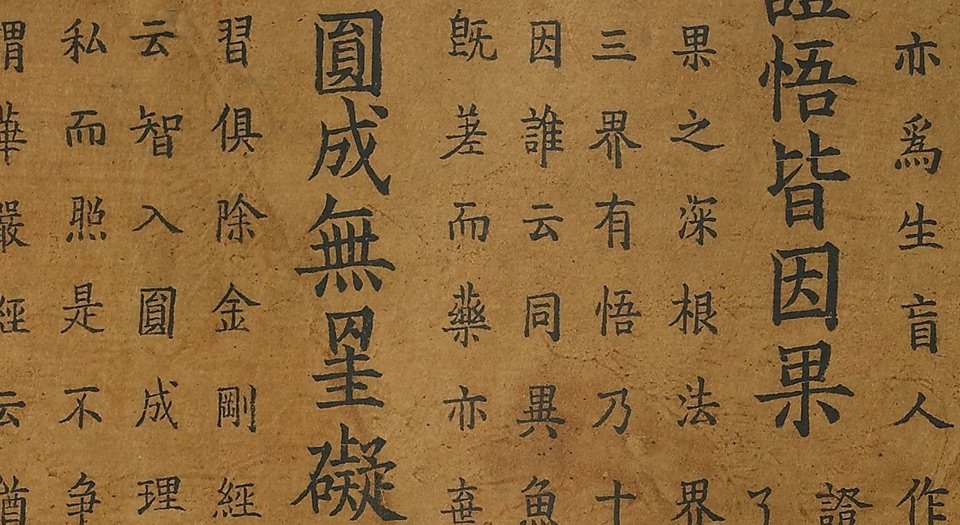 亦為生盲人作
證悟皆因果
證
了
果之深根法界
三界有悟乃十
因誰云同異魚
既差而藥亦棄
圓成無罣礙
習俱除金剛經
云智入圓成理
私而照是不爭
謂華嚴經云猶